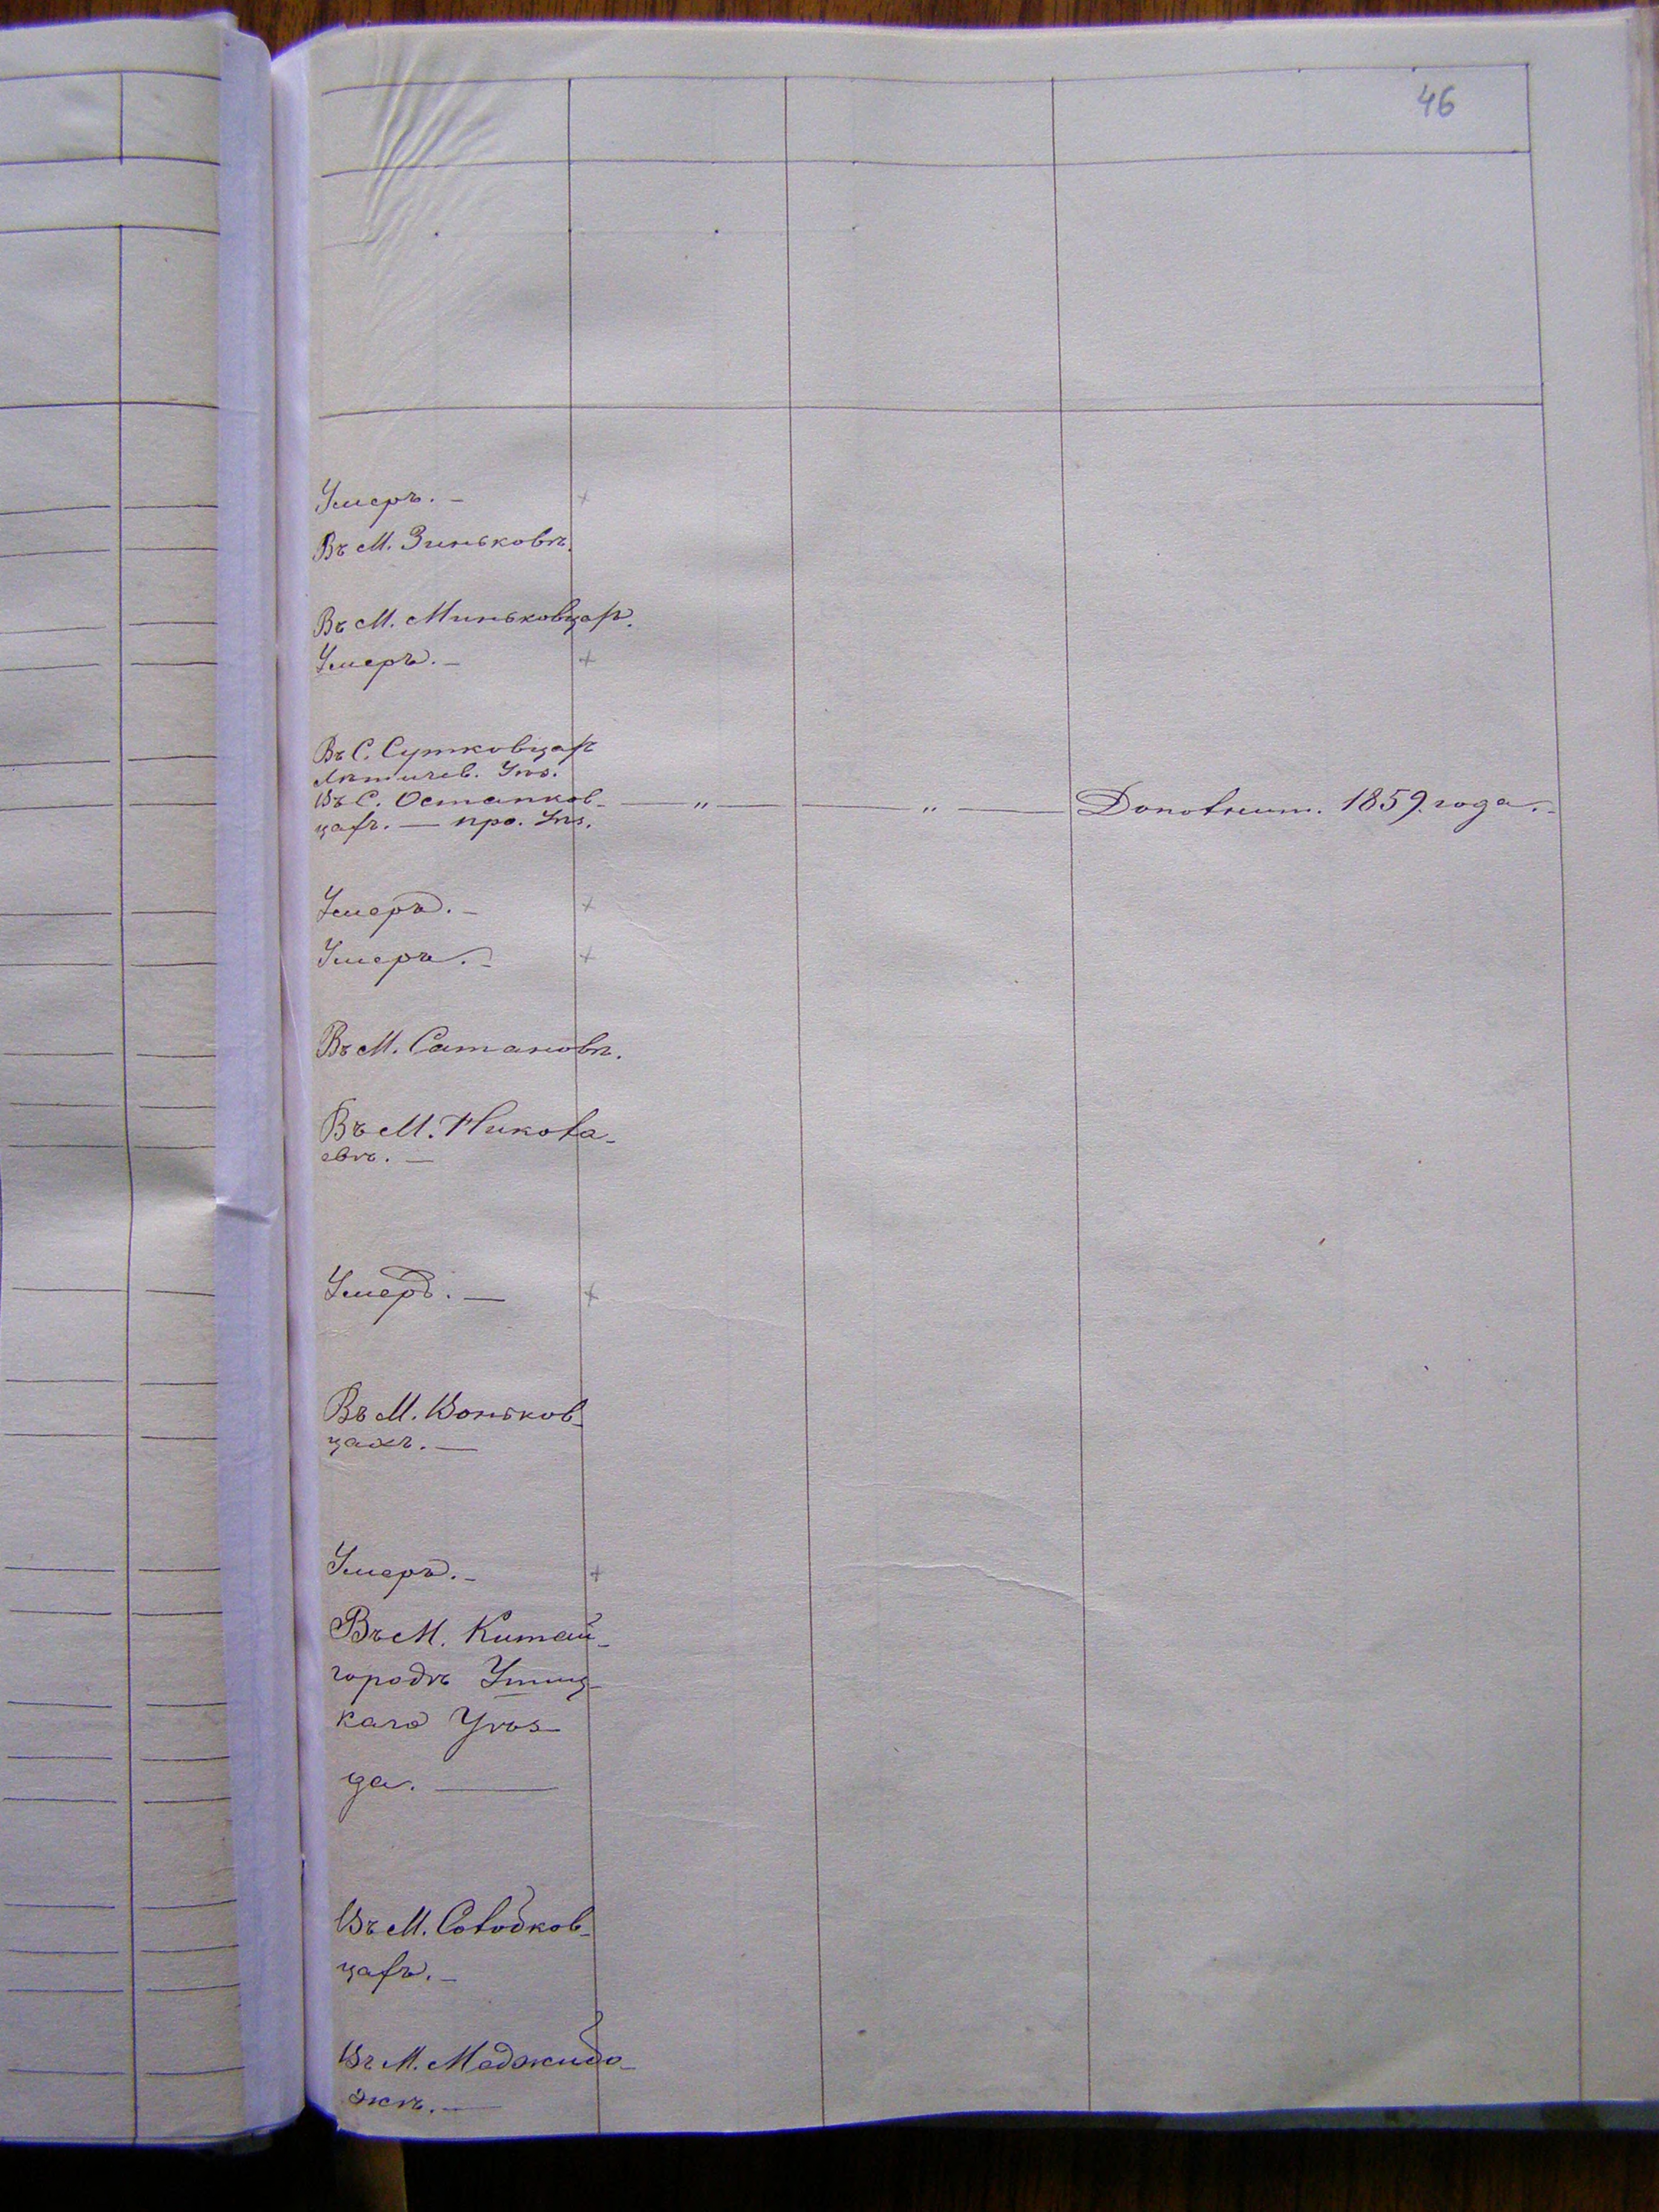 46
Умеръ. —
Въ М. Зиньковѣ.
Въ М. Миньковцахъ.
Умеръ. —
Въ С. Сутковцахъ
Лѣтичев. Уѣз.
Въ С. Остапков- — „ — — „ — Дополнит. 1859 года. —
цахъ. — Уѣз.
Умеръ. —
Умеръ. —
Въ М. Сатановѣ.
Въ М. Никола-
евѣ. —
Умеръ. —
Въ М. Воньков-
цахъ. —
Умеръ. —
Въ М. Китай-
городѣ Ушиц-
каго Уѣз-
да. —
Въ М. Солобков-
цахъ. —
Въ М. Меджибо-
жѣ. —